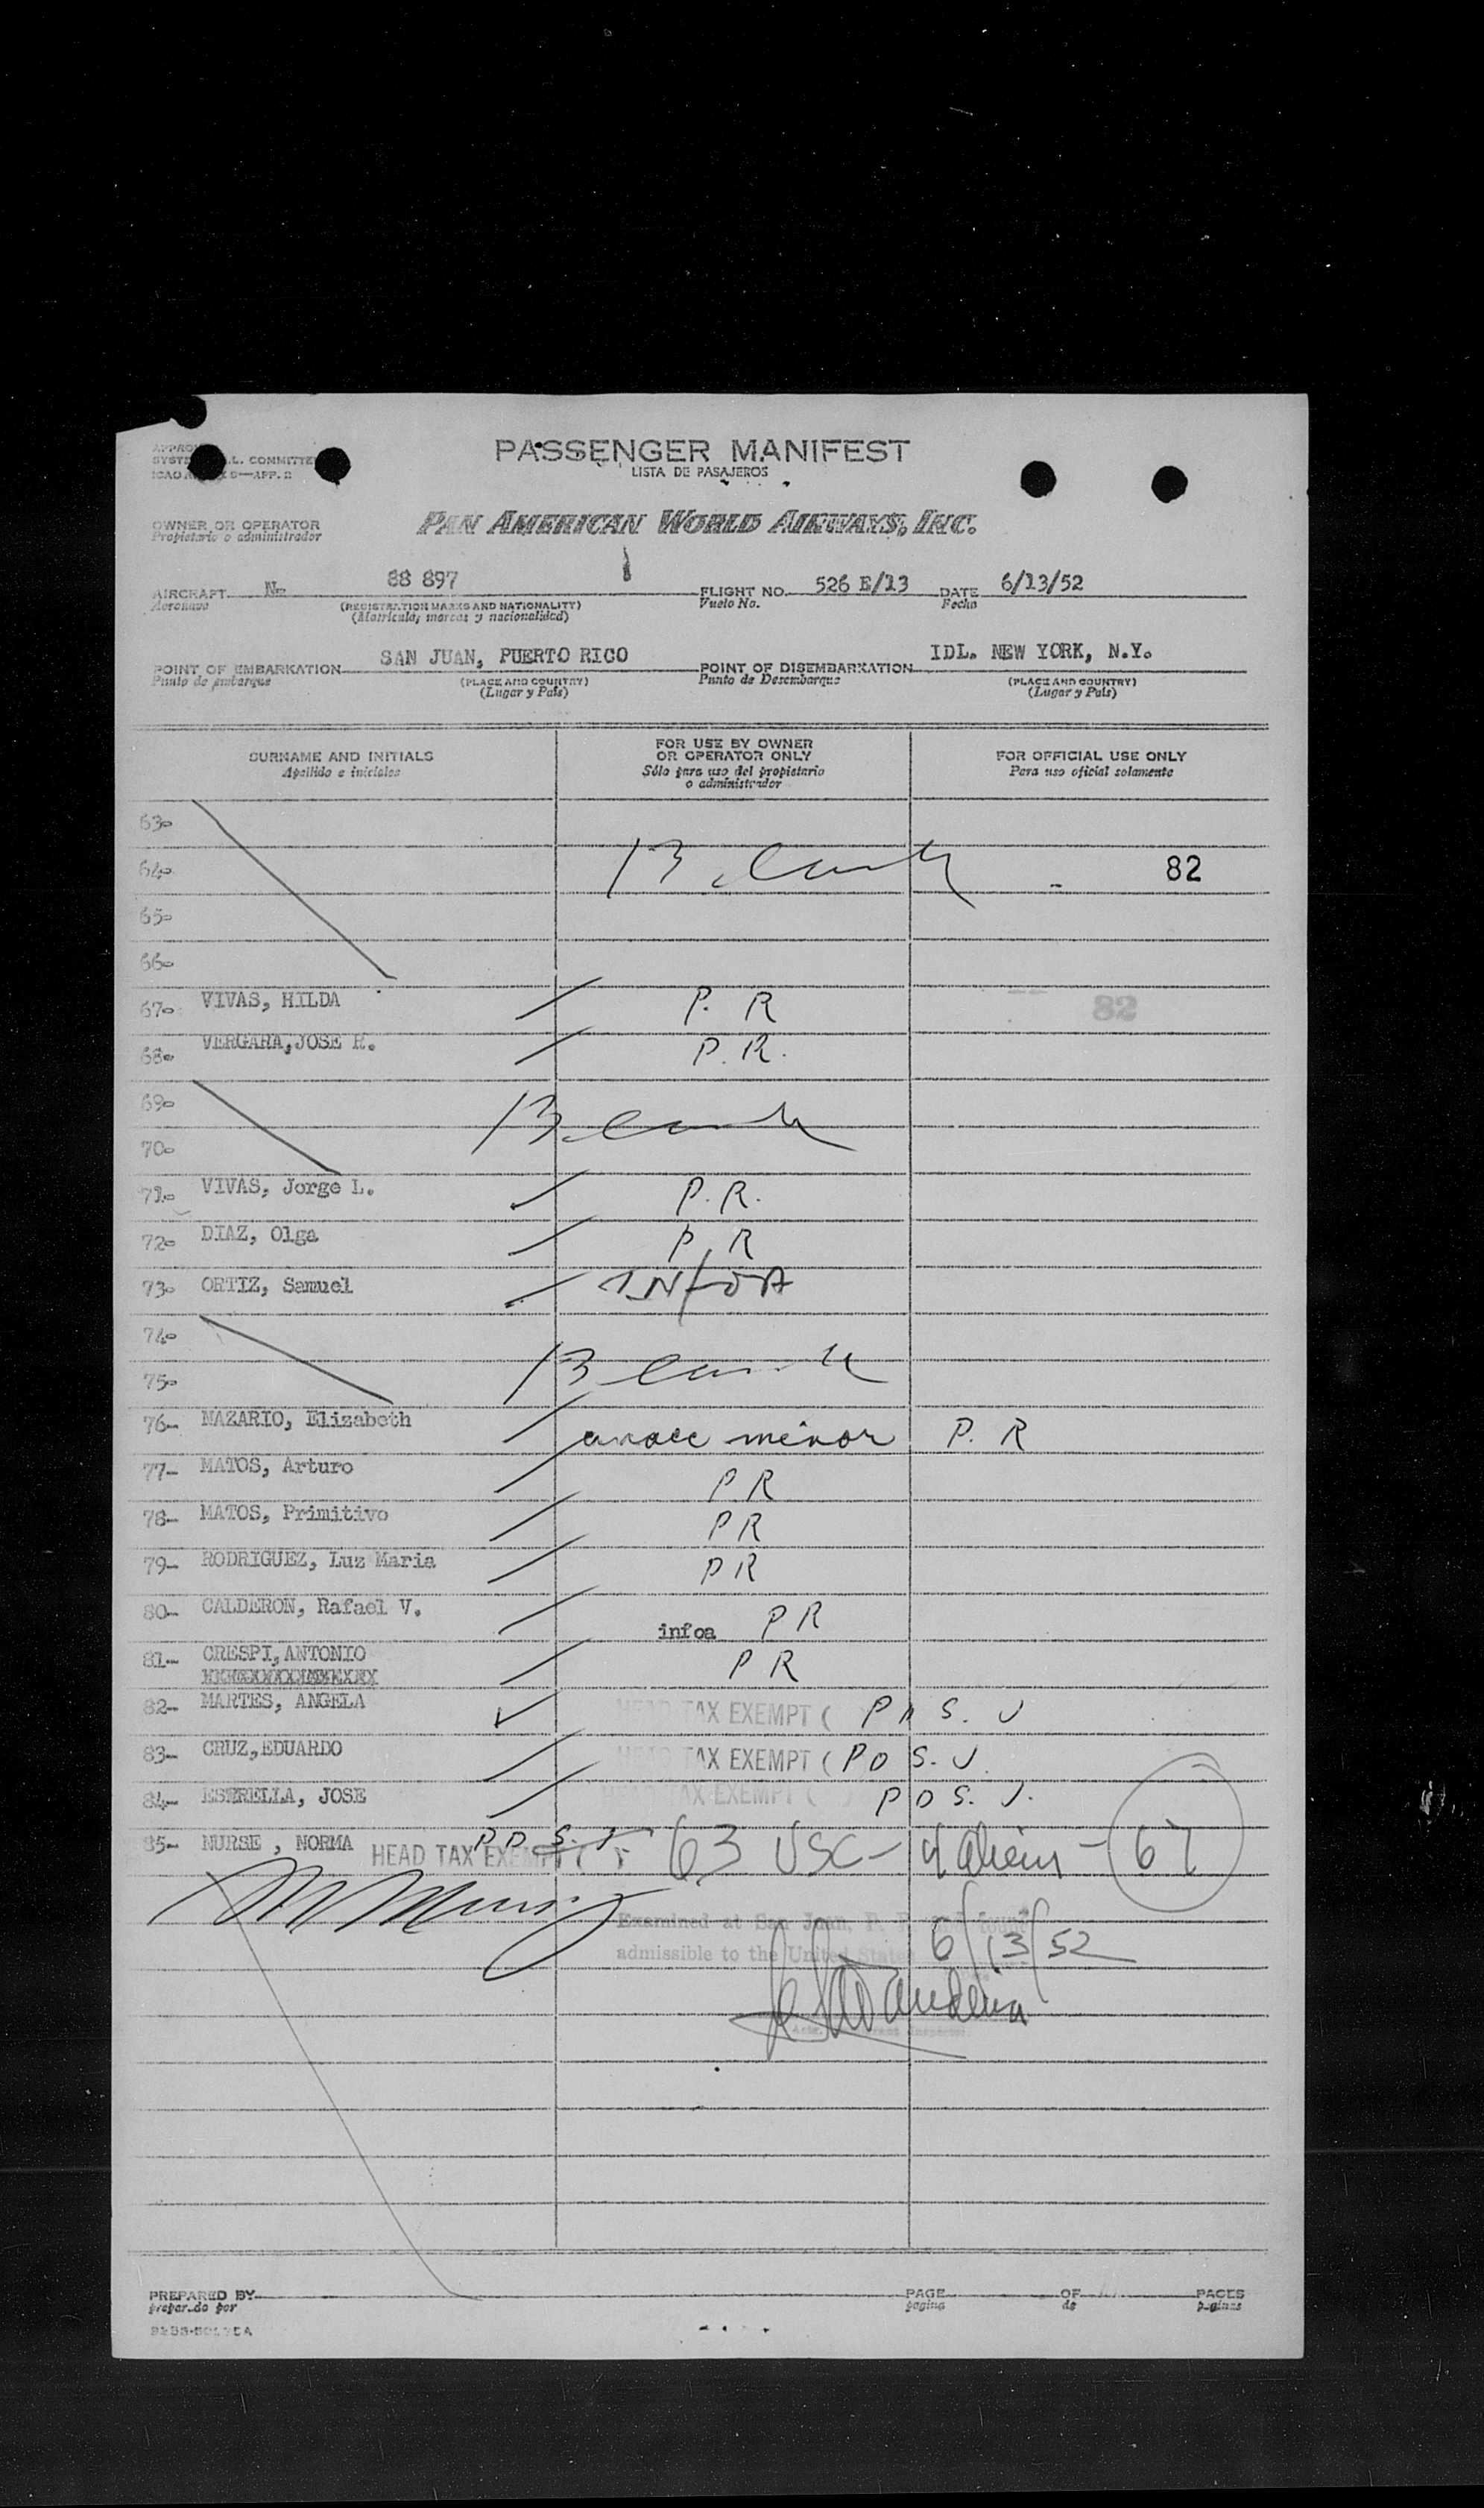 PASSENGER MANIFEST
LISTA DE PASAJEROS
L. COMMITTEE
APP. 2
OWNER OR OPERATOR
Propietario o administrador
PAN AMERICAN WORLD AIRWAYS, INC.
AIRCRAFT N- 88 897 FLIGHT NO. 526 E/13 DATE 6/13/52
Aeronave (REGISTRATION MARKS AND NATIONALITY) Vuelo No. Fecha
(Matricula, marcas y nacionalidad)
POINT OF EMBARKATION SAN JUAN, PUERTO RICO POINT OF DISEMBARKATION IDL. NEW YORK, N.Y.
Punto de embarque (PLACE AND COUNTRY) Punto de Desembarque (PLACE AND COUNTRY)
(Lugar y País) (Lugar y País)
SURNAME AND INITIALS FOR USE BY OWNER OR OPERATOR ONLY FOR OFFICIAL USE ONLY
Apellido e iniciales Sólo para uso del propietario o administrador Para uso oficial solamente
63-
64- Blank 82
65-
66-
67- VIVAS, HILDA P. R 82
68- VERGARA,JOSE R. P.R.
69- Blank
70-
71- VIVAS, Jorge L. P.R.
72- DIAZ, Olga P.R
73- ORTIZ, Samuel INFOA
74-
75- Blank
76- NAZARIO, Elizabeth minor P. R
77- MATOS, Arturo PR
78- MATOS, Primitivo PR
79- RODRIGUEZ, Luz Maria PR
80- CALDERON, Rafael V. infoa PR
81- CRESPI,ANTONIO PR
82- MARTES, ANGELA HEAD TAX EXEMPT (
83- CRUZ,EDUARDO HEAD TAX EXEMPT ( POS.J.
84- ESTRELLA, JOSE HEAD TAX EXEMPT ( ) POS.J.
85- NURSE , NORMA HEAD TAX EXEMPT ( 63 USC- 4 aliens - 67
Examined at San Juan, P. R. and found
admissible to the United States 6/13/52
PREPARED BY PAGE OF PAGES
preparado por pagina de paginas